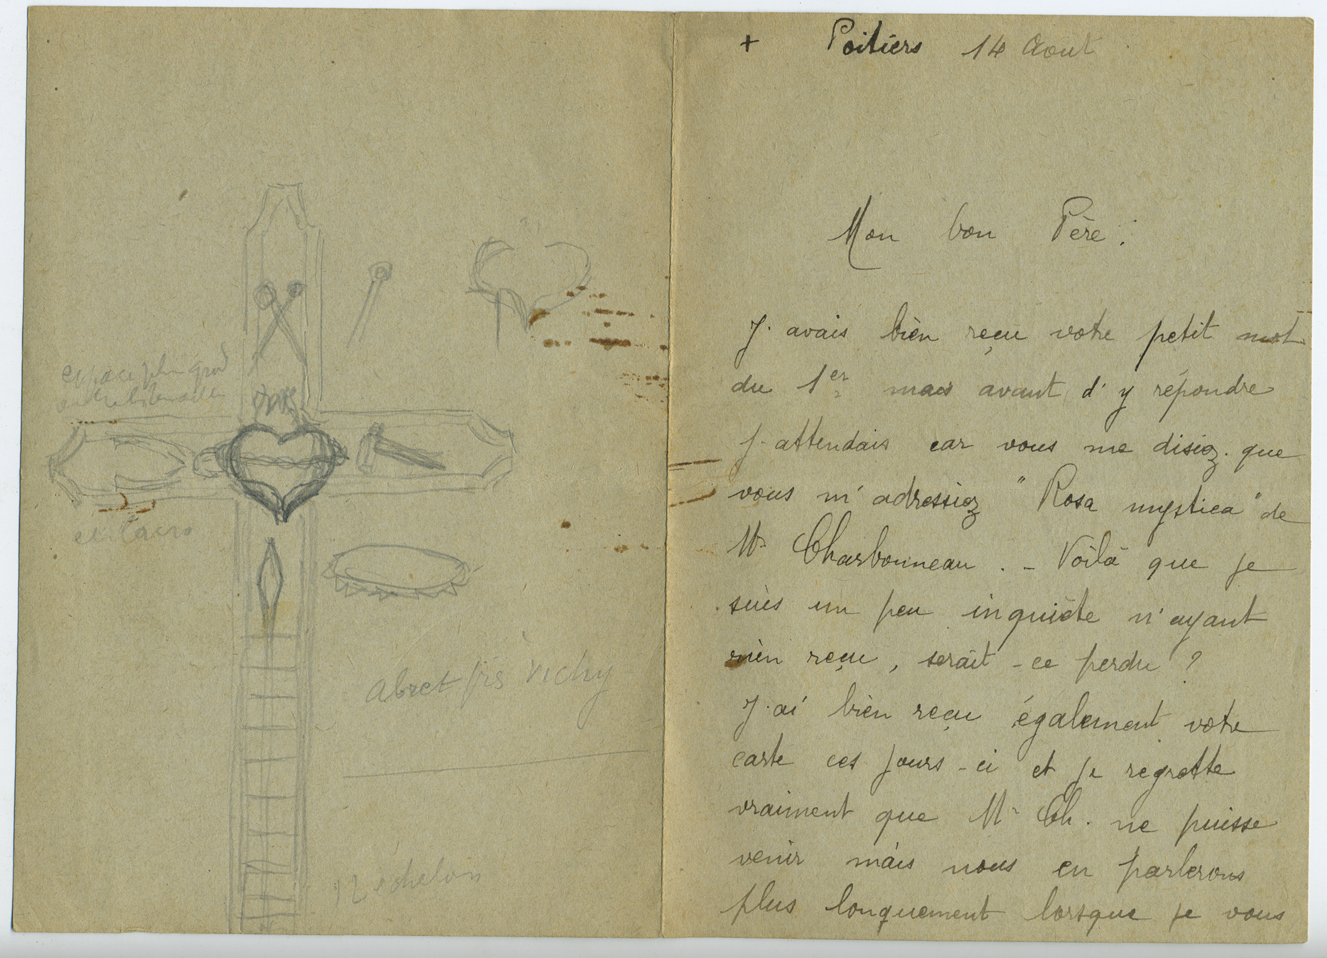 espace plus grand
et Cacro
Abret près Vichy
12 échelons
+ Poitiers 14 Août
Mon bon Père :
J'avais bien reçu votre petit mot
du 1er mais avant d'y répondre
j'attendais car vous me disiez que
vous m'adressiez "Rosa mystica" de
Mr Charbonneau . - Voilà que je
suis un peu inquiète n'ayant
rien reçu, serait-ce perdu ?
J'ai bien reçu également votre
carte ces jours-ci et je regrette
vraiment que Mr Ch. ne puisse
venir mais nous en parlerons
plus longuement lorsque je vous